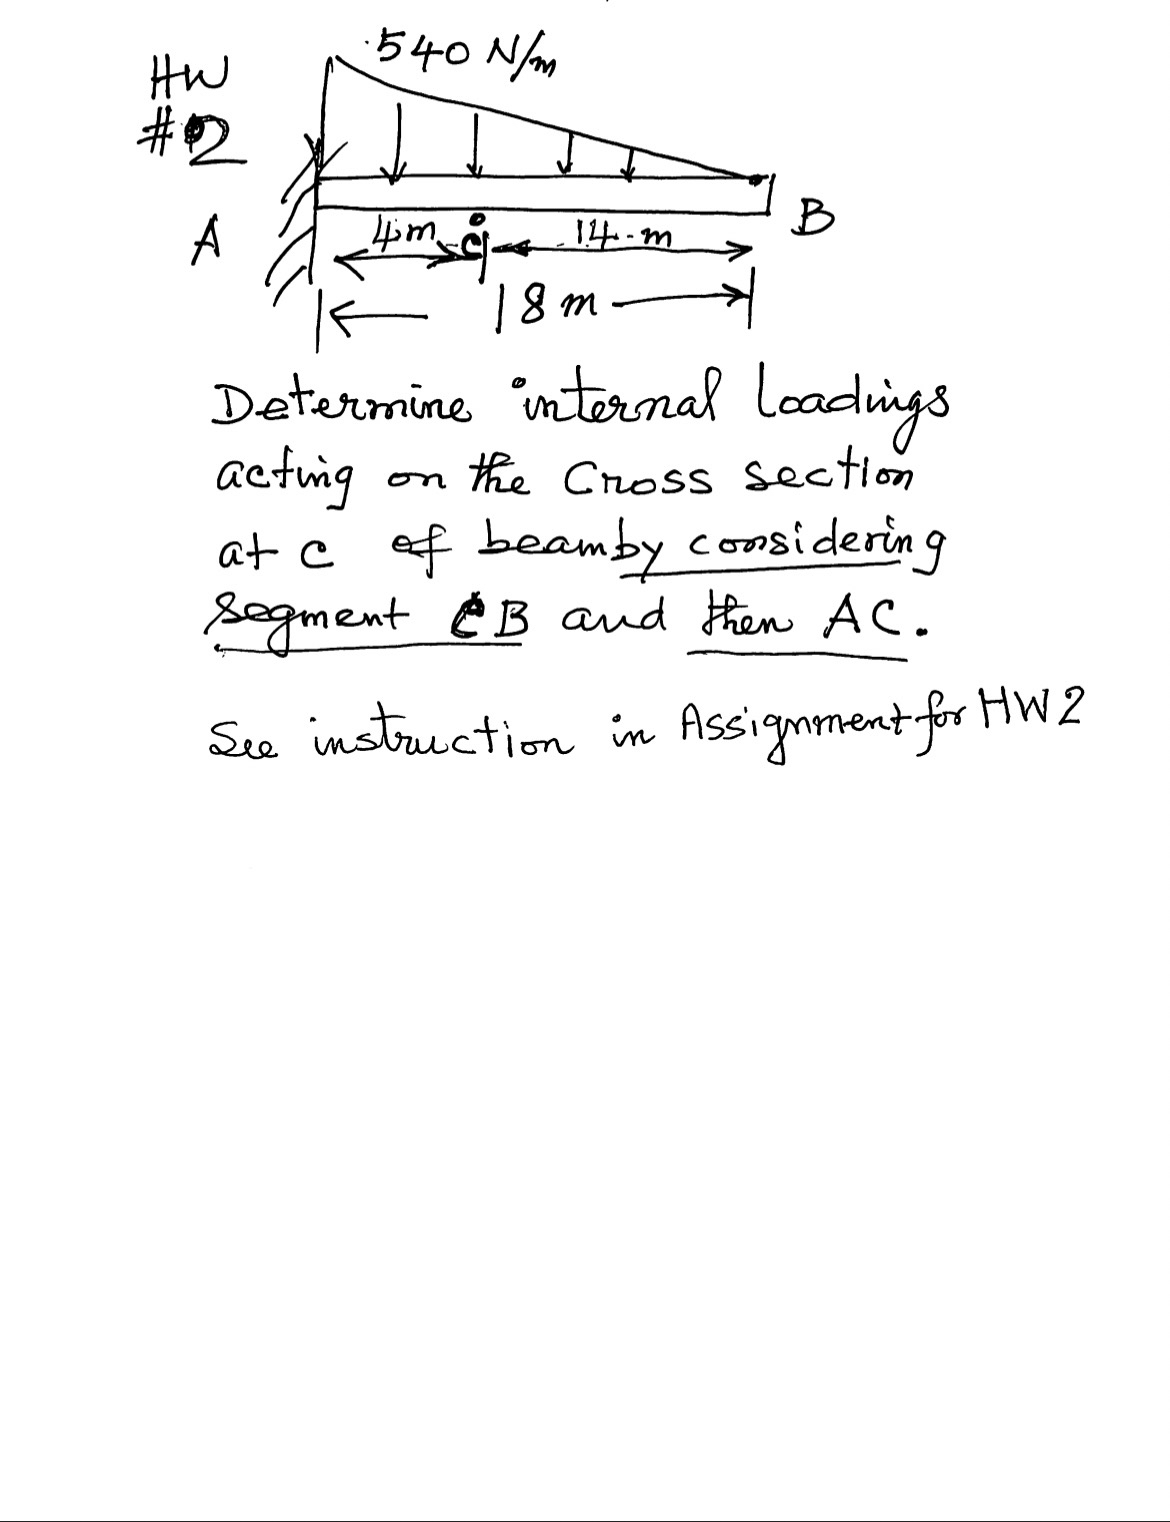 540 N/m
HW
#2
A
B
4m
C
14-m
18 m
Determine internal Loadings
acting on the Cross section
at c of beamby considering
segment CB and then AC.
See instruction in Assignment for HW2